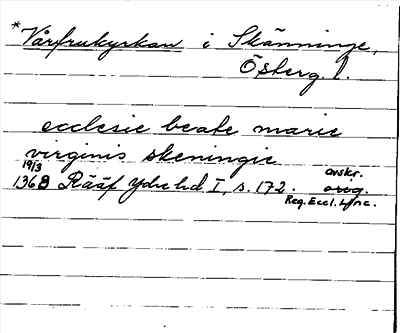 *Vårfrukyrkan i Skänninge,
Österg. l.
ecclesie beate marie
virginis skeningie
19/3
1368 Rääf Ydre hd I, s. 172. avskr.
orig.
Reg. Eccl. Linc.